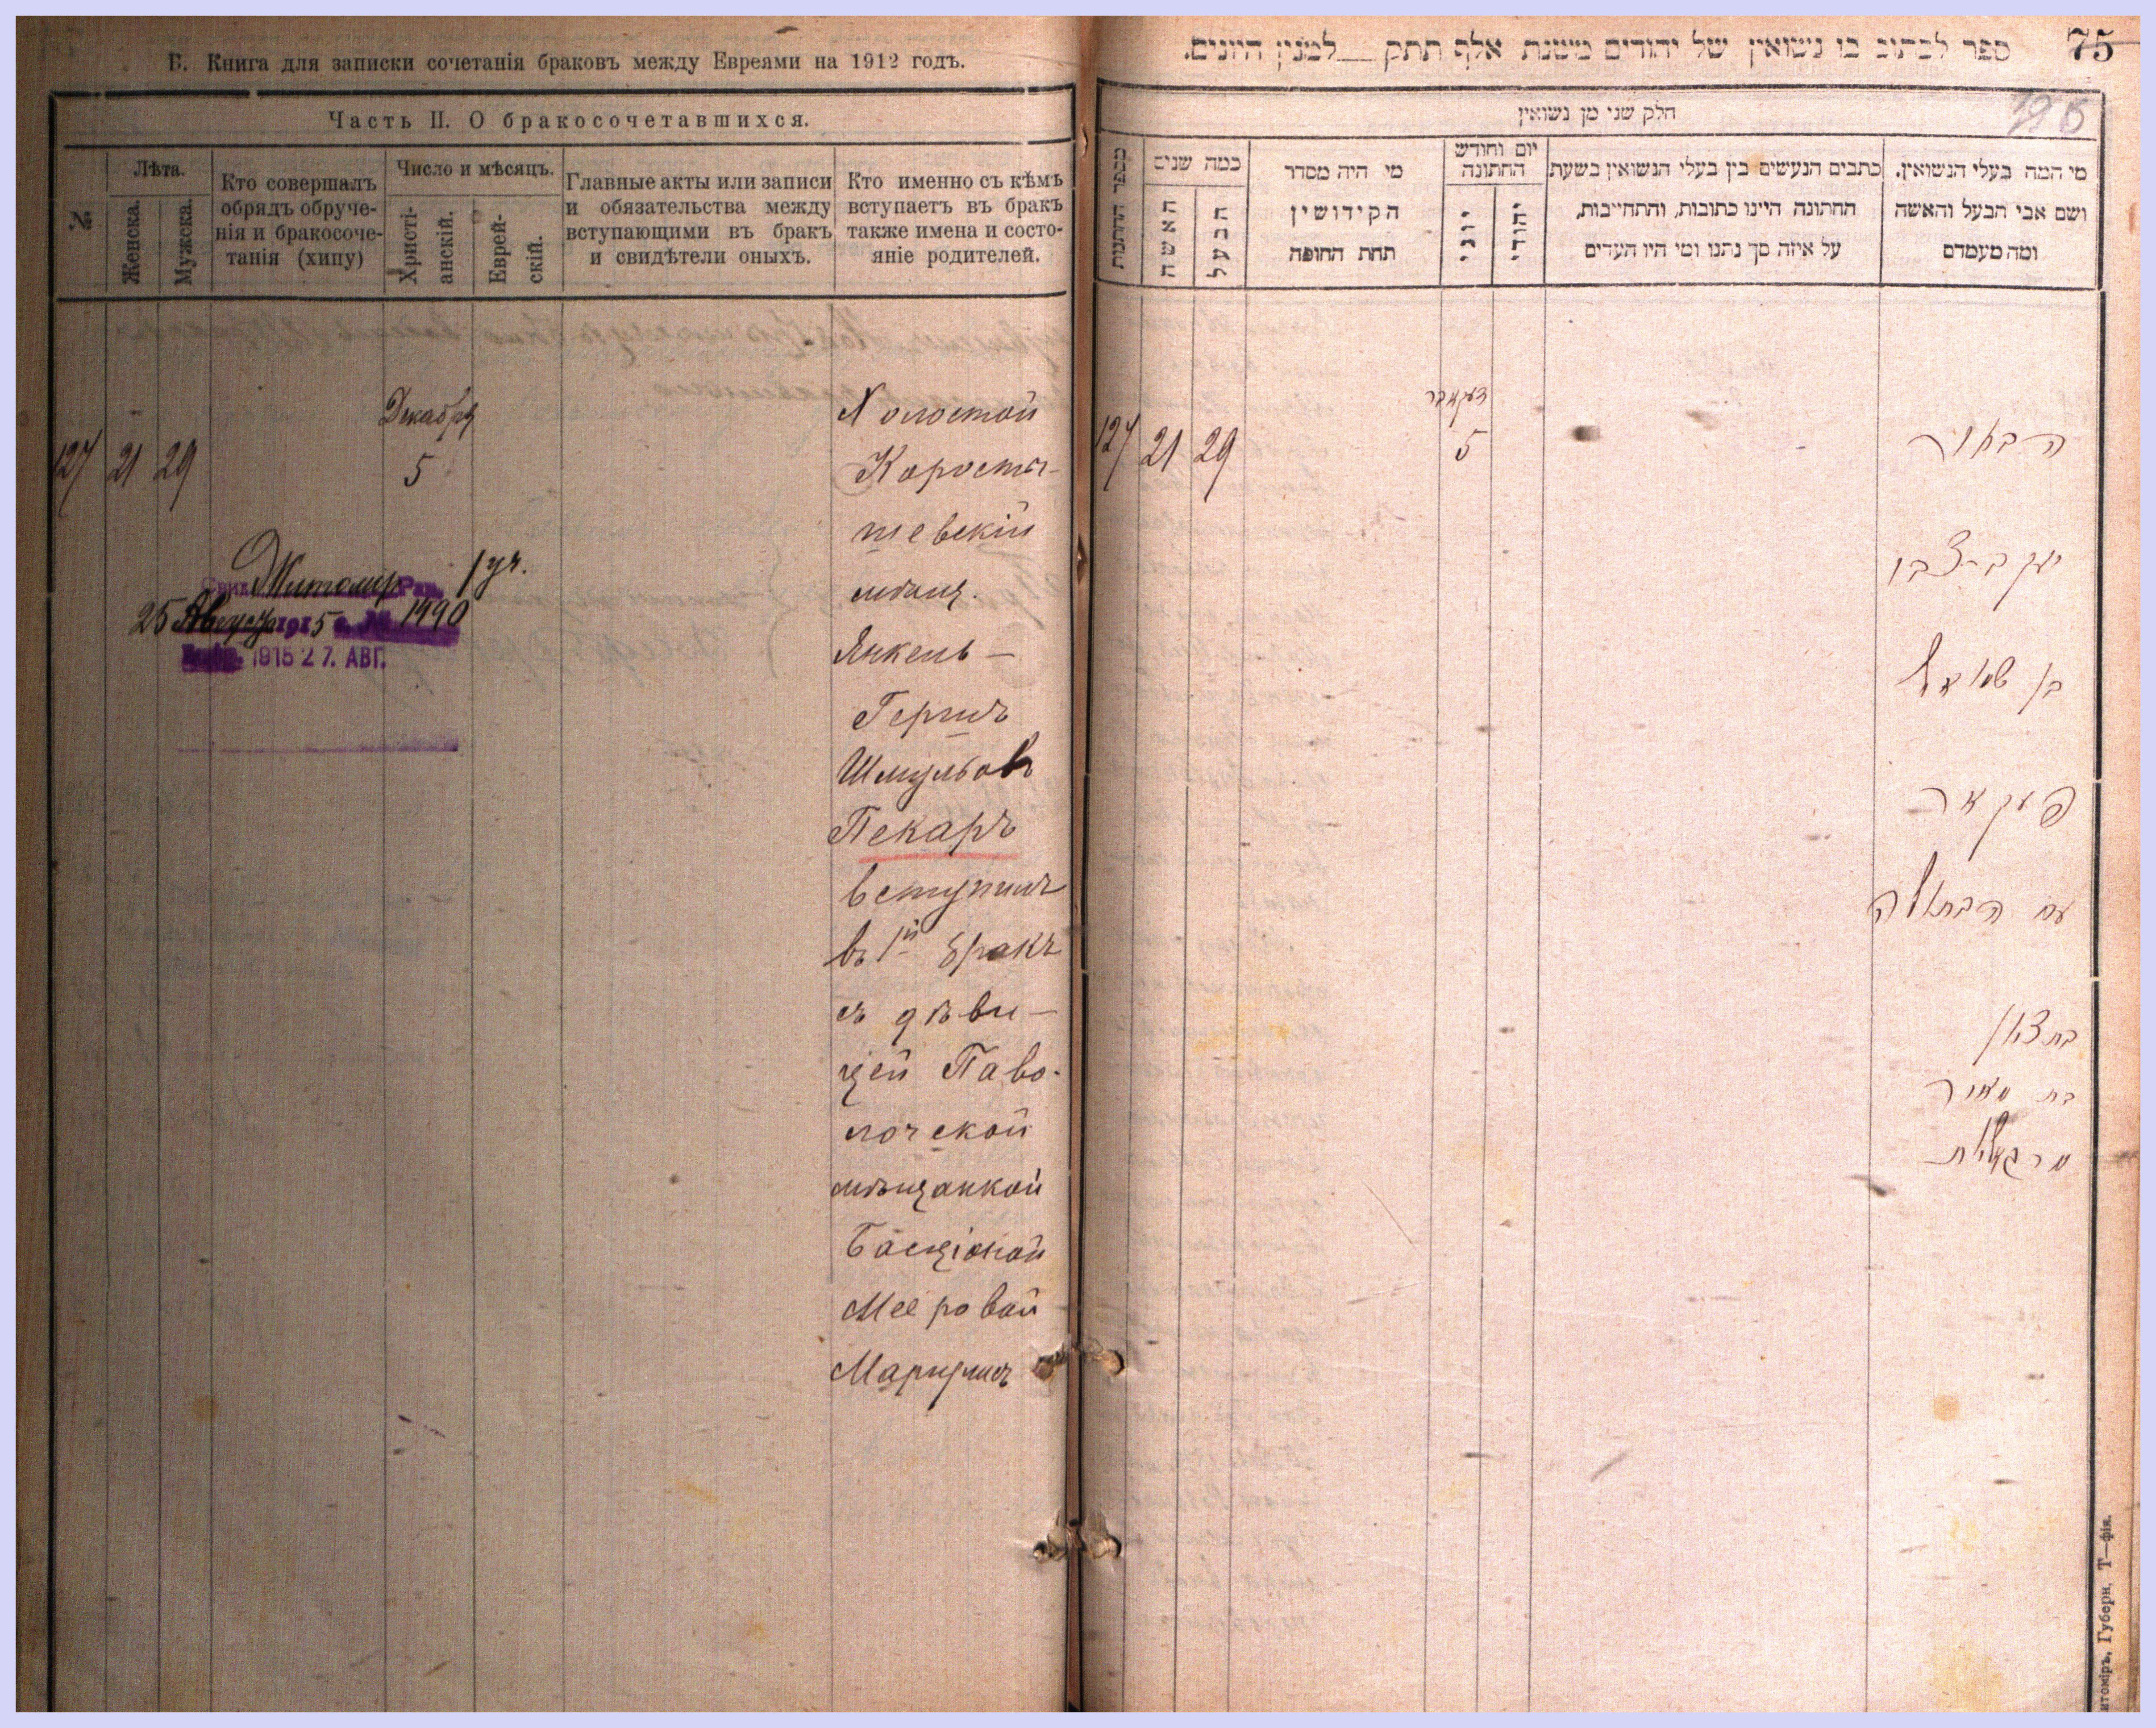 В. Книга для записки сочетанія браковъ между Евреями на 1912 годъ.
Часть II. О бракосочетавшихся.
№
Лѣта.
Женска.
Мужска.
Кто совершалъ
обрядъ обруче-
нія и бракосоче-
танія (хипу)
Число и мѣсяцъ.
Христі-
анскій.
Еврей-
скій.
Главные акты или записи
и обязательства между
вступающими въ бракъ
и свидѣтели оныхъ.
Кто именно съ кѣмъ
вступаетъ въ бракъ
также имена и состо-
яніе родителей.
127 21 29
Декабря
5
Житомир 1 уч.
25 Августа 1915 г. № 1990
1915 27. АВГ.
Холостой
Коросты-
шевскій
мѣщ.
Янкель-
Гершъ
Шмульовъ
Пекаръ
вступилъ
въ 1й бракъ
съ дѣви-
цей Паво-
лочской
мѣщанкой
Басціоной
Мееровой
Маргулисъ
75
ספר לכתוב בו נשואין של יהודים משנת אלף תתק לפנין היונים.
חלק שני מן נשואין
מספר החתונות
כמה שנים
האשה
הבעל
מי היה מסדר
הקידושין
תחת החופה
יום וחודש
החתונה
יוני
יהודי
כתבים הנעשים בין בעלי הנשואין בשעת
החתונה היינו כתובות, והתחייבות,
על איזה סך נתנו ומי היו העדים
מי המה בעלי הנשואין.
ושם אבי הבעל והאשה
ומה מעמדם
127 21 29
דעקאבר
5
הבאור
יעקב-צבי
בן שמואל
פעקאר
עם הבתולה
בת ציון
בת מאיר
מרגליות
итоміръ, Губерн. Т—фія.